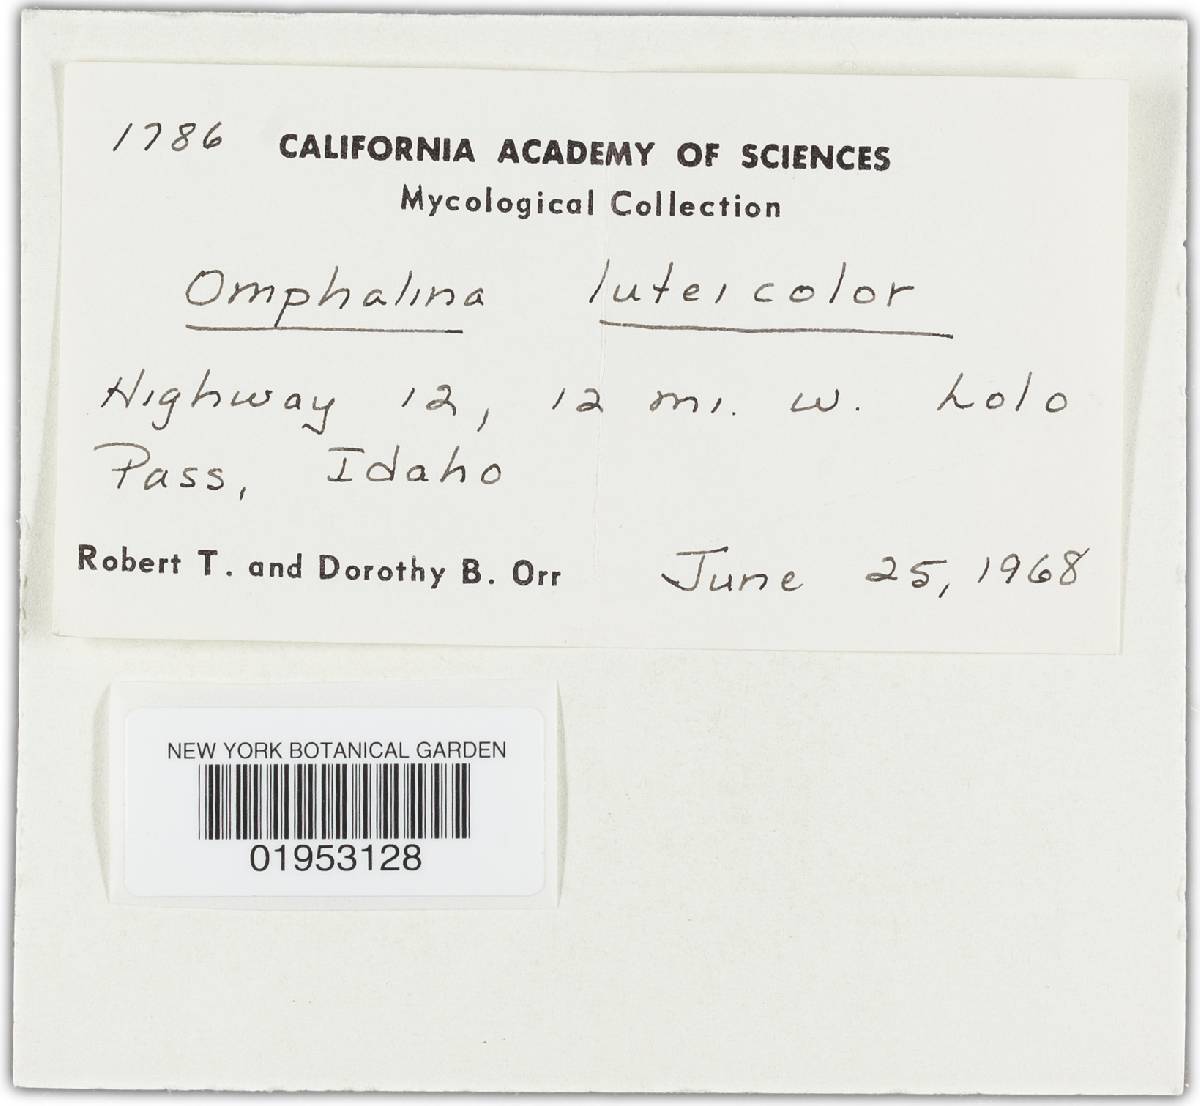 1786 CALIFORNIA ACADEMY OF SCIENCES
Mycological Collection
Omphalina luteicolor
Highway 12, 12 mi. w. Lolo
Pass, Idaho
Robert T. and Dorothy B. Orr June 25, 1968
NEW YORK BOTANICAL GARDEN
01953128